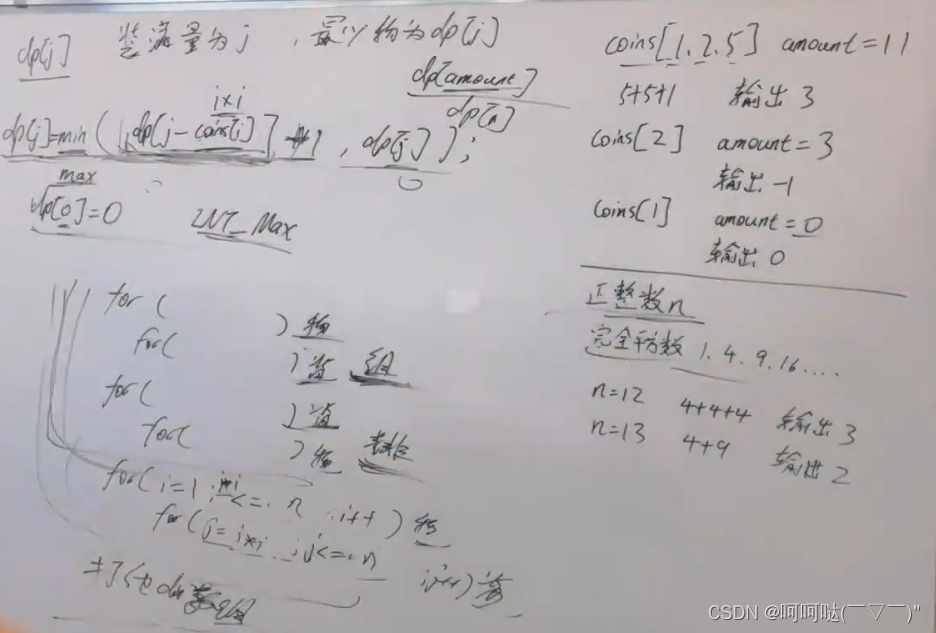 dp[j] 装满量为j ，最少物为dp[j]
dp[amount]
dp[n]
i*i
dp[j]=min(dp[j-coins[i]]+1, dp[j]);
max
0
dp[0]=0 INT_Max
for(
)物
for(
)背 组
for(
)背
for(
)物 排
for(i=1; i*i<=n i++)物
for(j=i*i; j<=n j++)背
打印dp数组
coins[1.2.5] amount=11
5+5+1 输出 3
coins[2] amount=3
输出 -1
coins[1] amount=0
输出 0
正整数n
完全平方数 1.4.9.16....
n=12 4+4+4 输出 3
n=13 4+9 输出 2
CSDN @呵呵哒(￣▽￣)"